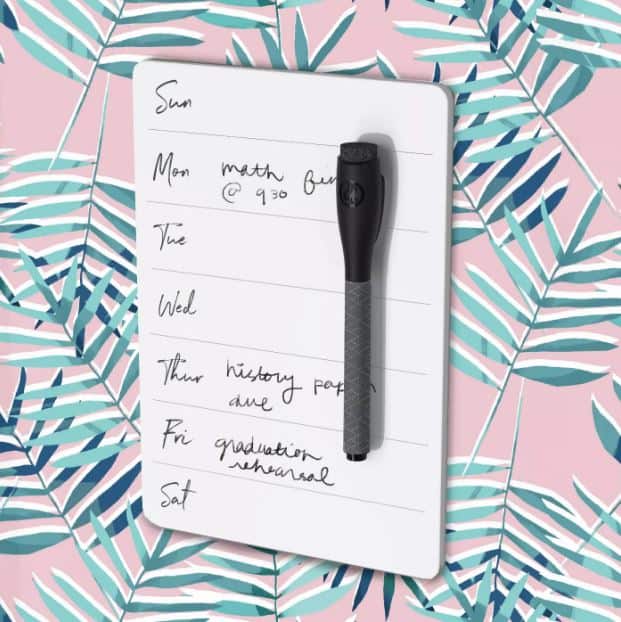 Sun
Mon math
@ 930
Tue
Wed
Thur history
due
Fri graduation
rehearsal
Sat